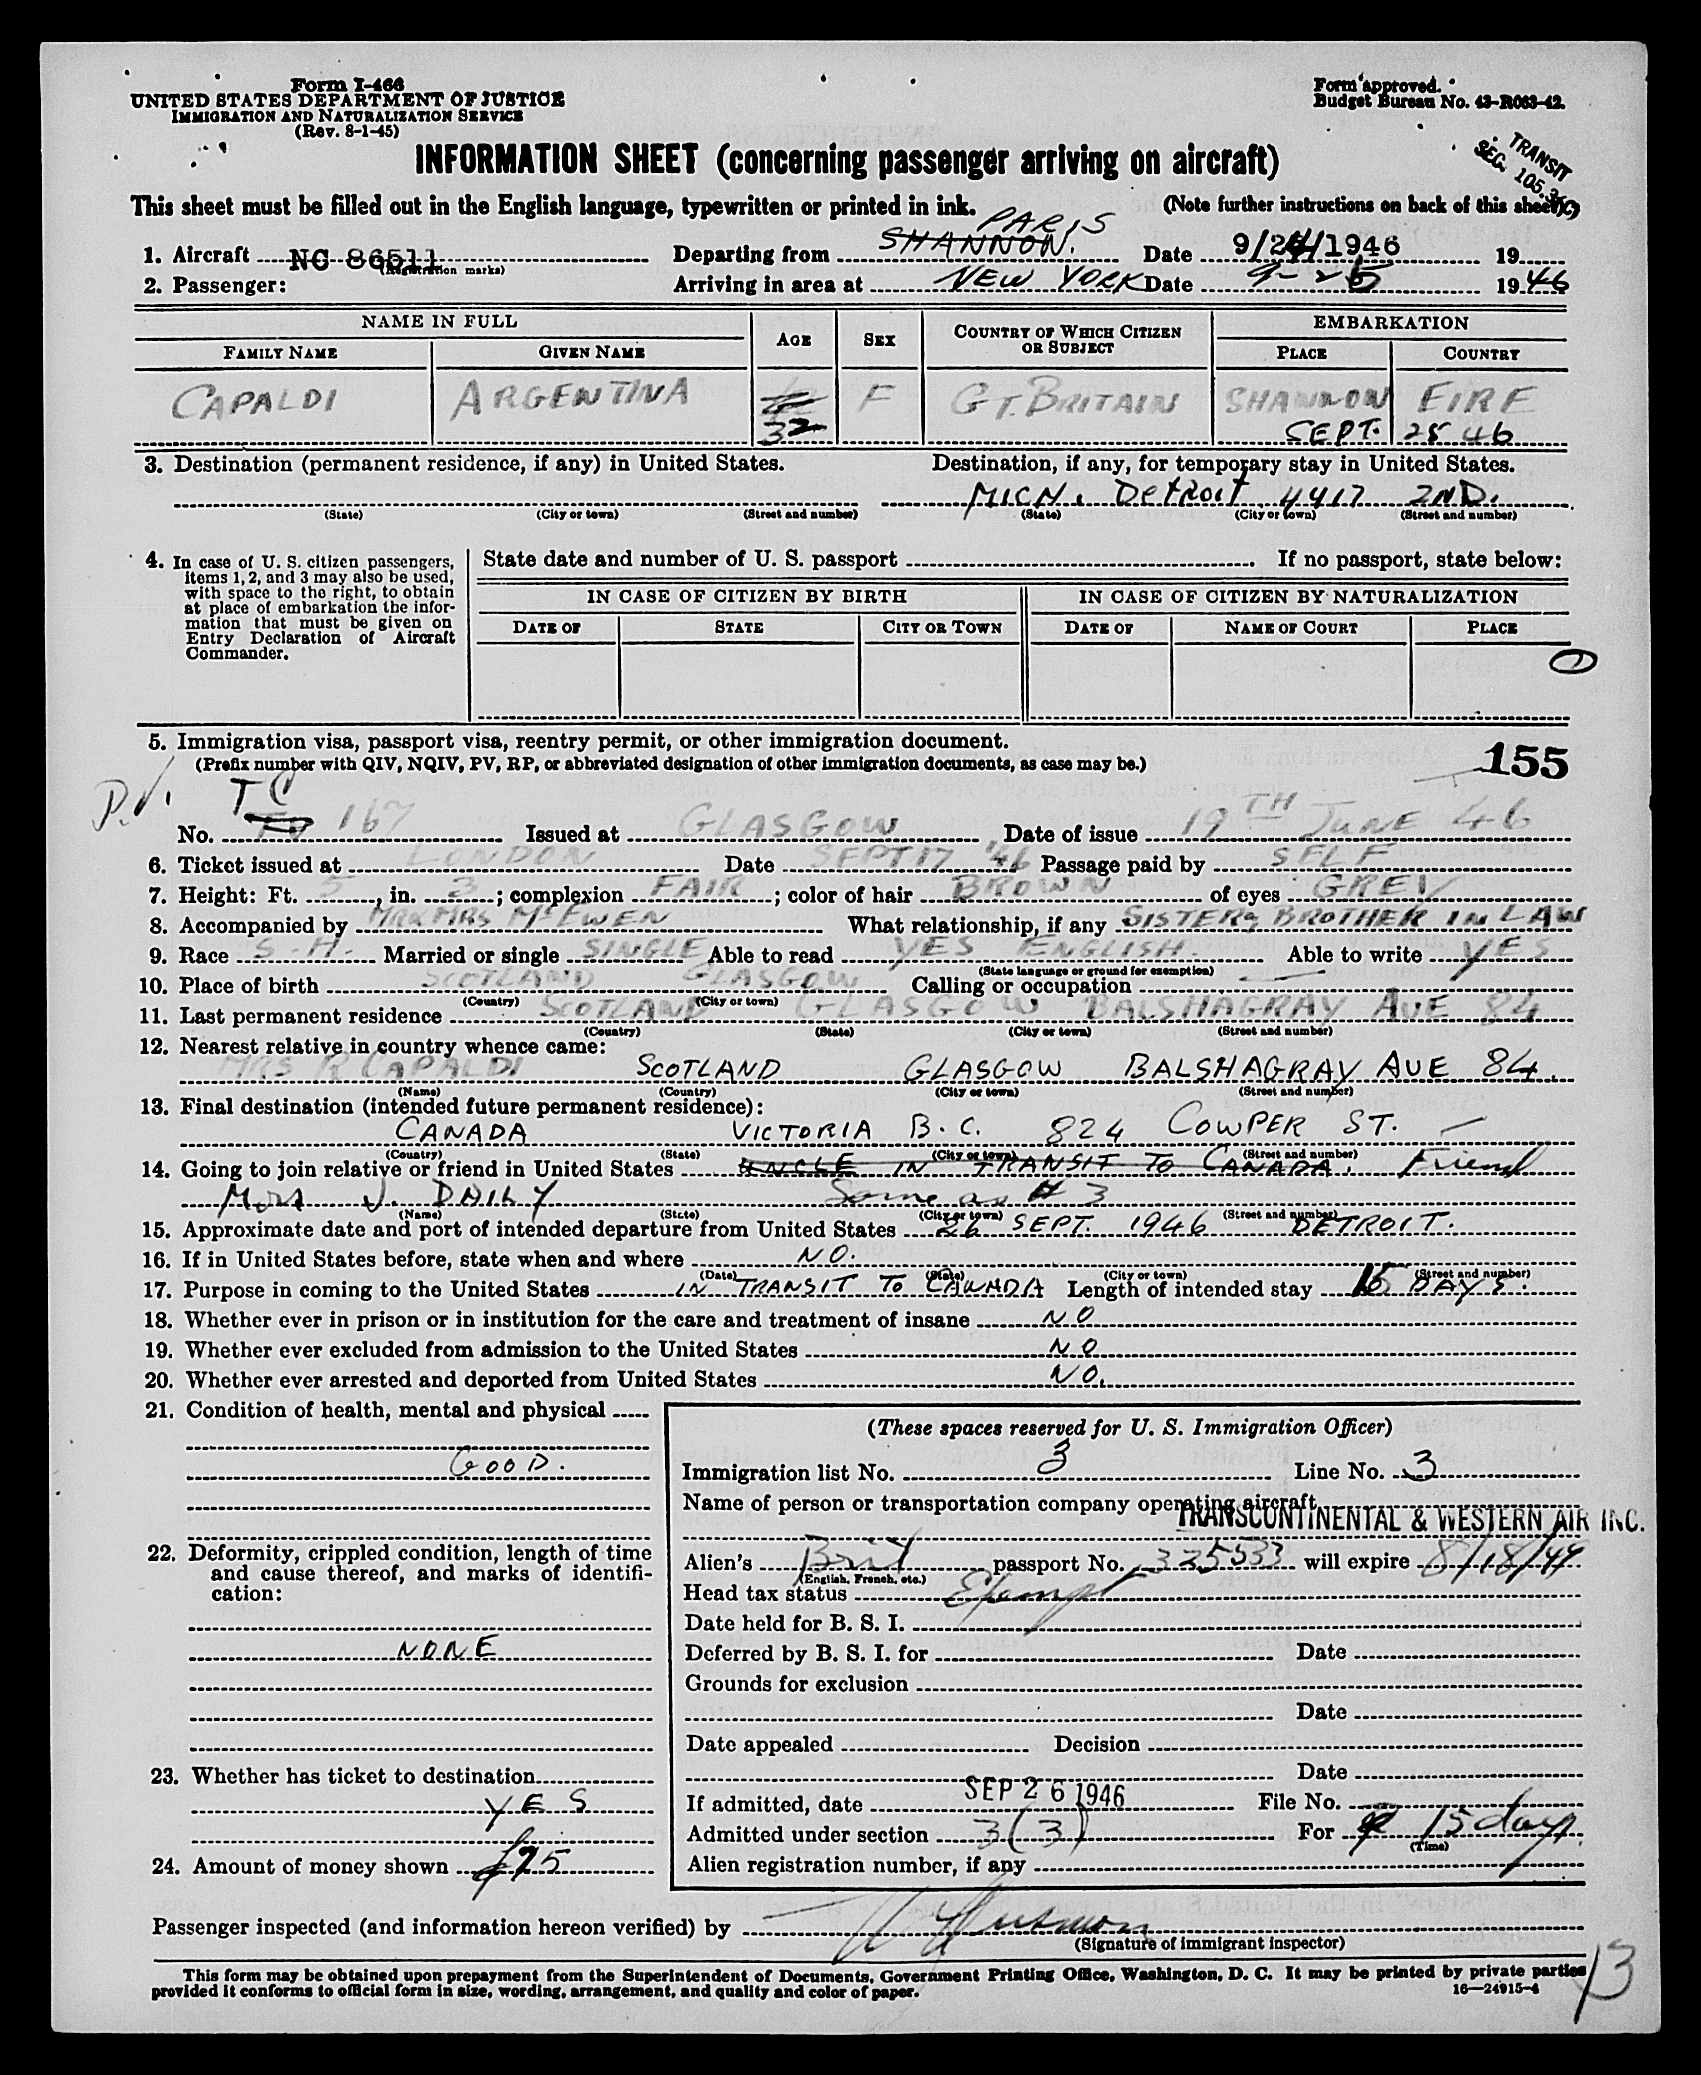 Form I-466
UNITED STATES DEPARTMENT OF JUSTICE
IMMIGRATION AND NATURALIZATION SERVICE
(Rev. 8-1-45)
Form approved.
Budget Bureau No. 43-R063-42.
TRANSIT
SEC. 105.3(C)
INFORMATION SHEET (concerning passenger arriving on aircraft)
This sheet must be filled out in the English language, typewritten or printed in ink. (Note further instructions on back of this sheet)
PARIS
1. Aircraft NC 86511 Departing from SHANNON. Date 9/24/1946 19
(Registration marks)
2. Passenger: Arriving in area at NEW YORK Date 9-25 1946
NAME IN FULL AGE SEX COUNTRY OF WHICH CITIZEN OR SUBJECT EMBARKATION
FAMILY NAME GIVEN NAME PLACE COUNTRY
CAPALDI ARGENTINA F GT. BRITAIN SHANNON EIRE
32 SEPT. 25 46
3. Destination (permanent residence, if any) in United States. Destination, if any, for temporary stay in United States.
MICH. Detroit 4417 2ND.
(State) (City or town) (Street and number) (State) (City or town) (Street and number)
4. In case of U. S. citizen passengers, items 1, 2, and 3 may also be used, with space to the right, to obtain at place of embarkation the information that must be given on Entry Declaration of Aircraft Commander.
State date and number of U. S. passport If no passport, state below:
IN CASE OF CITIZEN BY BIRTH IN CASE OF CITIZEN BY NATURALIZATION
DATE OF STATE CITY OR TOWN DATE OF NAME OF COURT PLACE
5. Immigration visa, passport visa, reentry permit, or other immigration document.
(Prefix number with QIV, NQIV, PV, RP, or abbreviated designation of other immigration documents, as case may be.)
155
P.V. TC
No. 167 Issued at GLASGOW Date of issue 19TH JUNE 46
6. Ticket issued at LONDON Date SEPT 17 '46 Passage paid by SELF
7. Height: Ft. 5, in. 3; complexion FAIR; color of hair BROWN of eyes GREY
8. Accompanied by MR & MRS McEWEN What relationship, if any SISTER & BROTHER IN LAW
9. Race S.H. Married or single SINGLE Able to read YES ENGLISH. Able to write YES
(State language or ground for exemption)
10. Place of birth SCOTLAND GLASGOW Calling or occupation —
(Country) (City or town)
11. Last permanent residence SCOTLAND GLASGOW BALSHAGRAY AVE 84
(Country) (State) (City or town) (Street and number)
12. Nearest relative in country whence came:
MRS R CAPALDI SCOTLAND GLASGOW BALSHAGRAY AVE 84.
(Name) (Country) (City or town) (Street and number)
13. Final destination (intended future permanent residence):
CANADA VICTORIA B.C. 824 COWPER ST. —
(Country) (State) (City or town) (Street and number)
14. Going to join relative or friend in United States UNCLE IN TRANSIT TO CANADA. Friend
Mrs J. DAILY Same as # 3
(Name) (State) (City or town) (Street and number)
15. Approximate date and port of intended departure from United States 26 SEPT. 1946 DETROIT.
16. If in United States before, state when and where NO.
(Date) (State) (City or town) (Street and number)
17. Purpose in coming to the United States IN TRANSIT TO CANADA Length of intended stay 15 DAYS.
18. Whether ever in prison or in institution for the care and treatment of insane NO
19. Whether ever excluded from admission to the United States NO
20. Whether ever arrested and deported from United States NO.
21. Condition of health, mental and physical
GOOD.
22. Deformity, crippled condition, length of time and cause thereof, and marks of identification:
NONE
23. Whether has ticket to destination
YES
24. Amount of money shown 25
(These spaces reserved for U. S. Immigration Officer)
Immigration list No. 3 Line No. 3
Name of person or transportation company operating aircraft
TRANSCONTINENTAL & WESTERN AIR INC.
Alien's Brit passport No. 335533 will expire 8/18/49
(English, French, etc.)
Head tax status Exempt
Date held for B. S. I.
Deferred by B. S. I. for Date
Grounds for exclusion
Date
Date appealed Decision
Date
If admitted, date SEP 26 1946 File No.
Admitted under section 3(3) For 15 days
(Time)
Alien registration number, if any
Passenger inspected (and information hereon verified) by
(Signature of immigrant inspector)
13
This form may be obtained upon prepayment from the Superintendent of Documents, Government Printing Office, Washington, D. C. It may be printed by private parties
provided it conforms to official form in size, wording, arrangement, and quality and color of paper.
16—24915-4